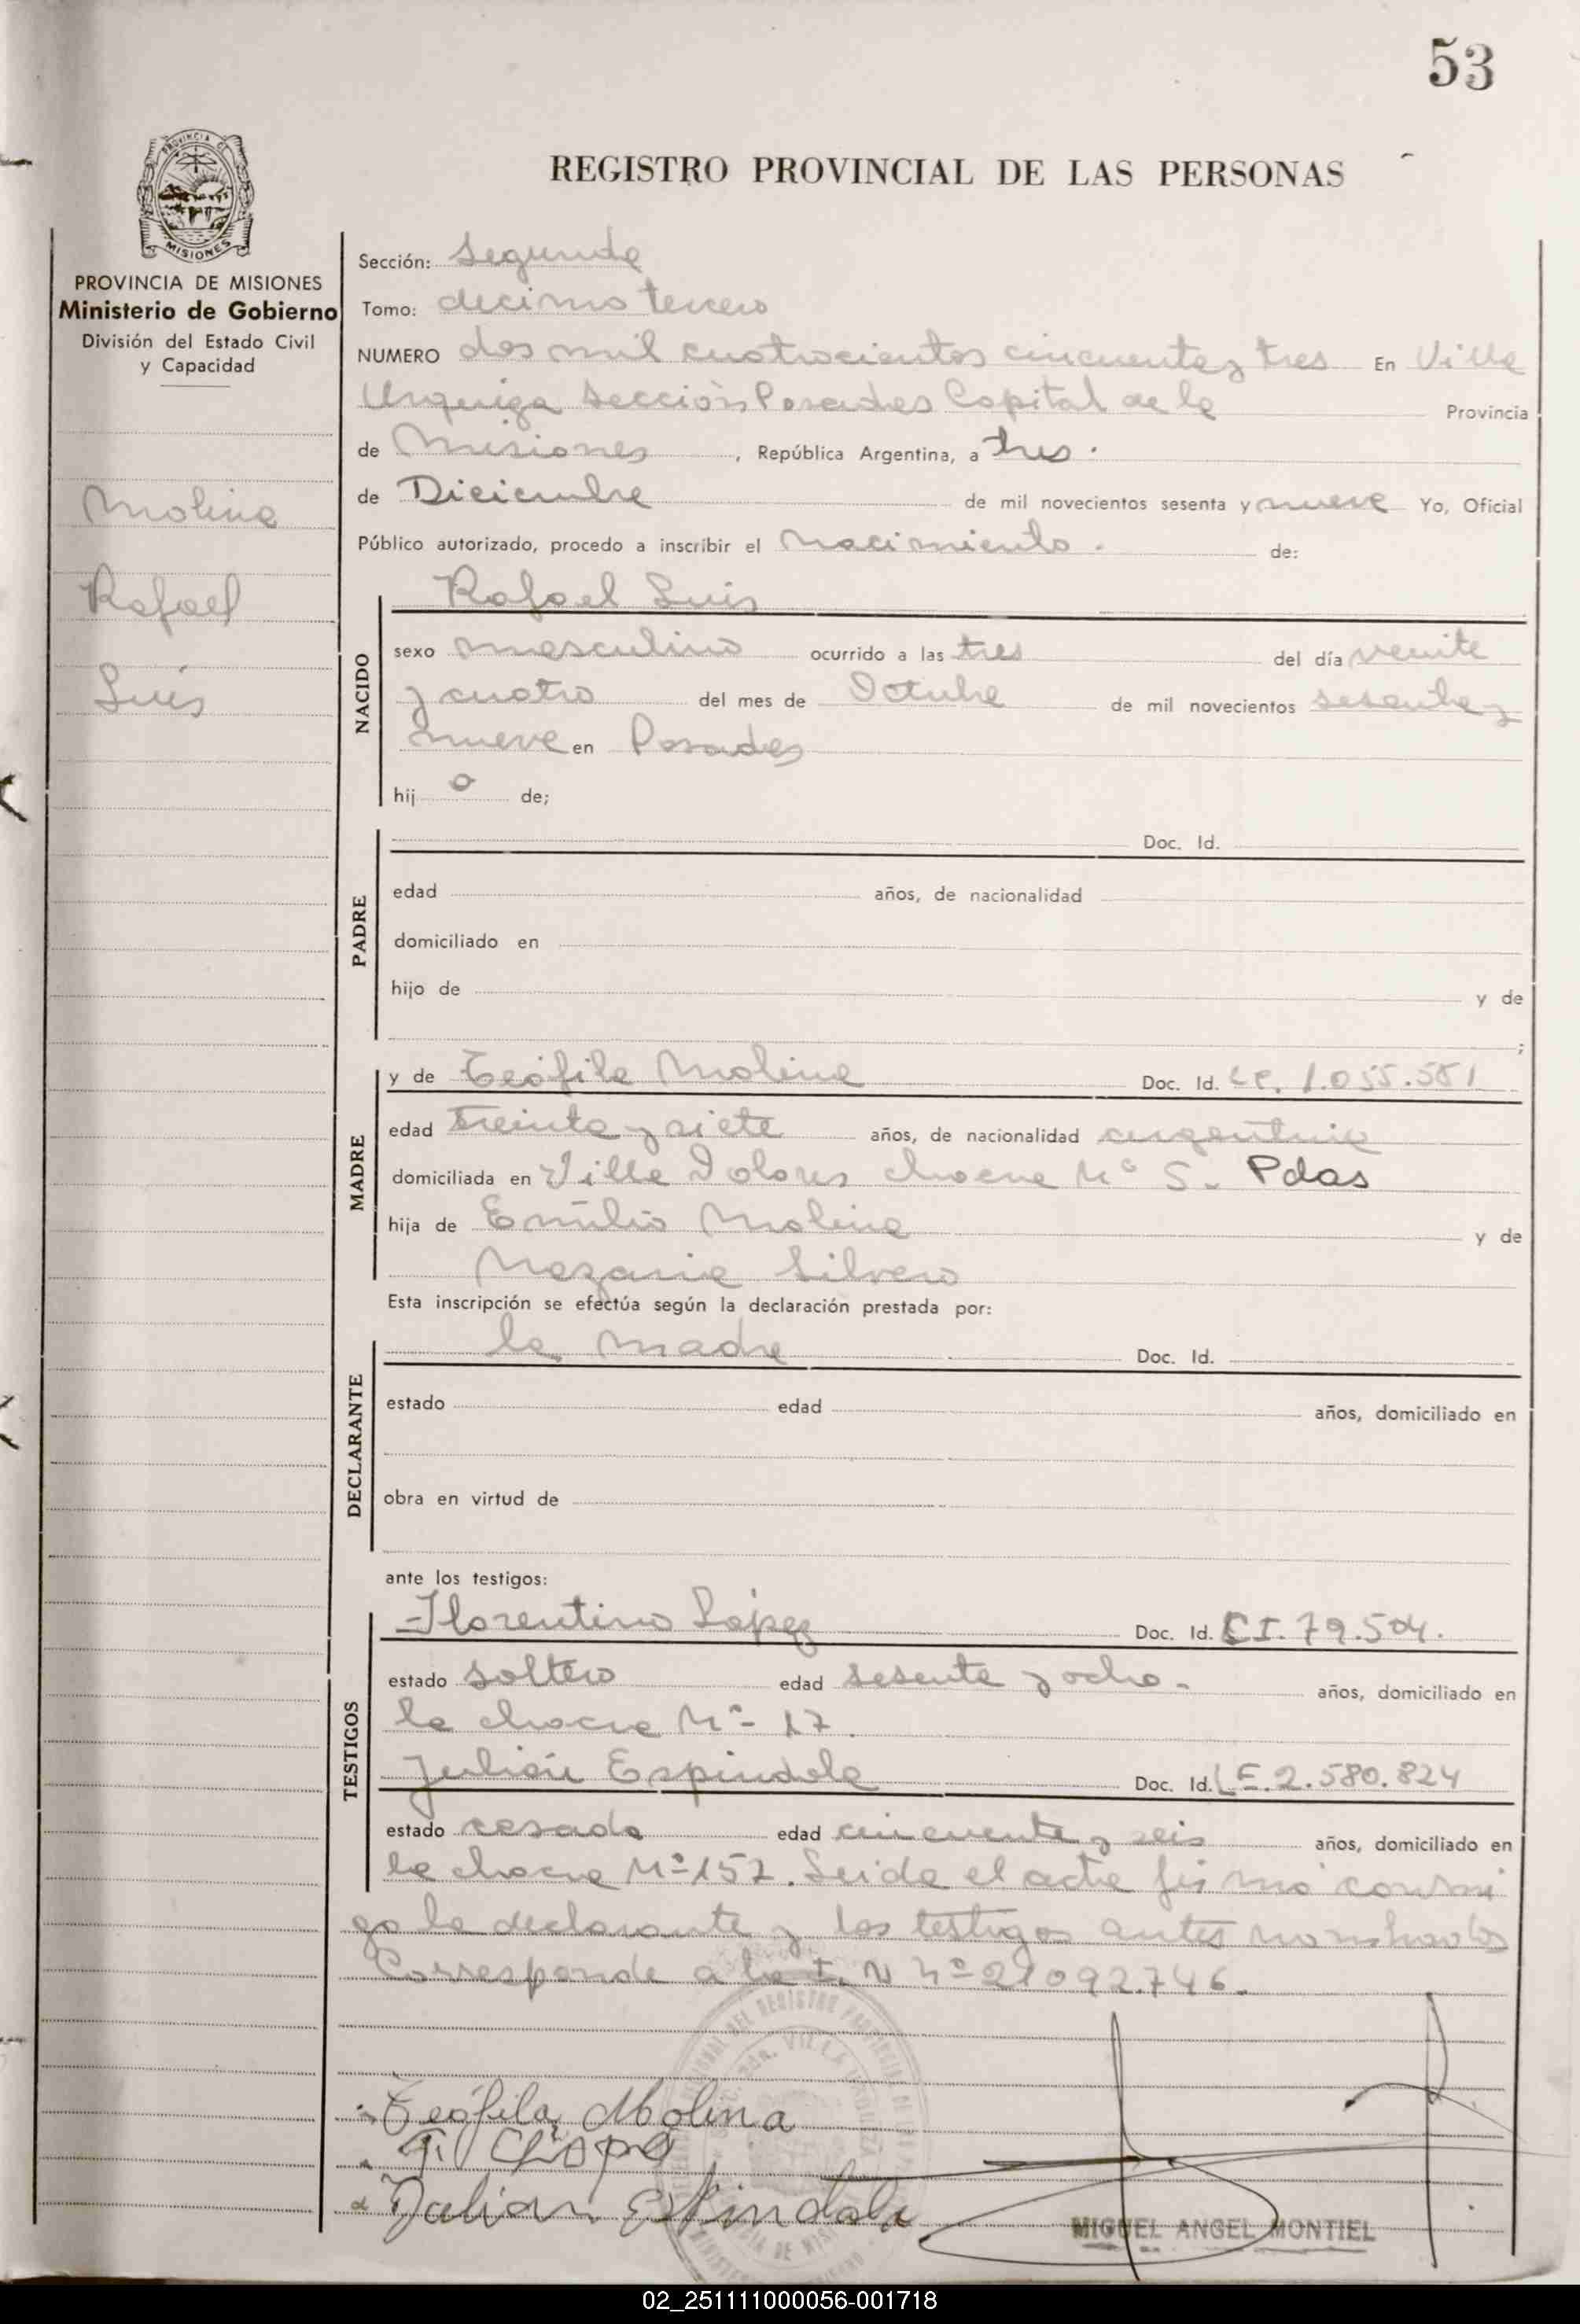 53
REGISTRO PROVINCIAL DE LAS PERSONAS
PROVINCIA DE MISIONES
Ministerio de Gobierno
División del Estado Civil
y Capacidad
Molina
Rafael
Luis
Sección: Segunda
Tomo: decimo tercero
NUMERO dos mil cuatrocientos cincuenta y tres En Villa
Urquiza Sección Posadas Capital de la Provincia
de Misiones, República Argentina, a tres.
de Diciembre de mil novecientos sesenta y nueve Yo, Oficial
Público autorizado, procedo a inscribir el Nacimiento. de:
NACIDO
Rafael Luis
sexo masculino ocurrido a las tres del día veinte
y cuatro del mes de Octubre de mil novecientos sesenta y
nueve en Posadas
hijo de;
PADRE
Doc. Id.
edad años, de nacionalidad
domiciliado en
hijo de y de
;
MADRE
y de Teófila Molina Doc. Id. LC. 1.055.551
edad treinta y siete años, de nacionalidad argentina
domiciliada en Villa Dolores chacra Nº 5. Pdas
hija de Emilio Molina y de
Nazaria Silvero
Esta inscripción se efectúa según la declaración prestada por:
DECLARANTE
la madre Doc. Id.
estado edad años, domiciliado en
obra en virtud de
ante los testigos:
TESTIGOS
Florentino López Doc. Id. CI. 79.504.
estado soltero edad sesenta y ocho. años, domiciliado en
la chacra Nº 17.
Julián Espindola Doc. Id. LE. 2.580.824
estado casado edad cincuenta y seis años, domiciliado en
la chacra Nº 157. Leida el acta firmó conmi
go la declarante y los testigos antes nombrados
Corresponde a la I. N Nº 21092.746.
Teófila Molina
Julian Espindola
MIGUEL ANGEL MONTIEL
02_251111000056-001718